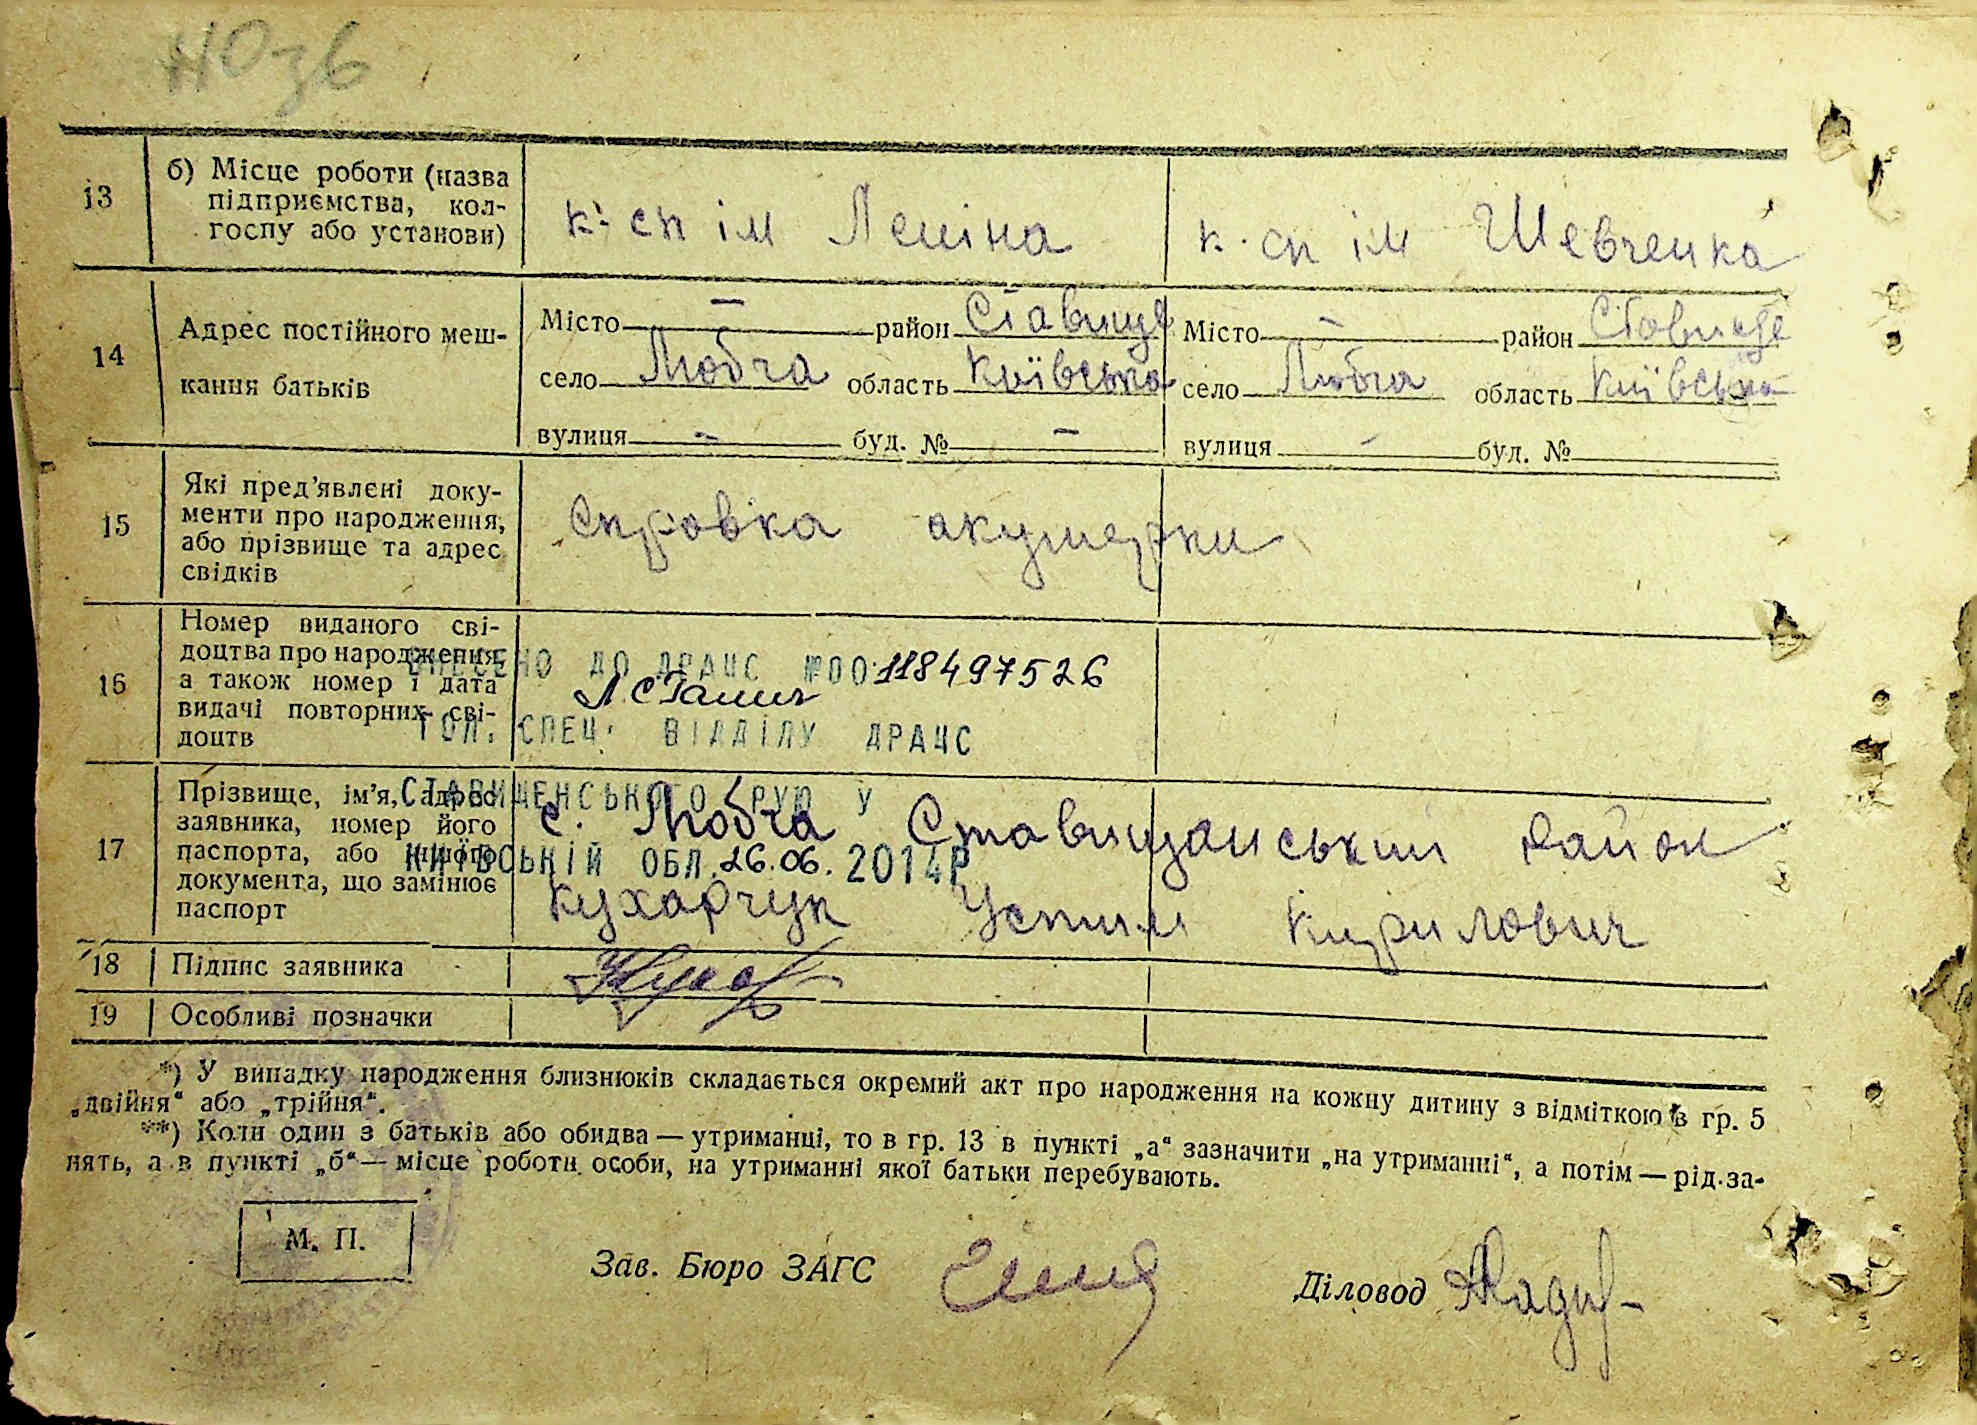 НОзб
13 б) Місце роботи (назва
підприємства, кол-
госпу або установи)
к: сп ім Леніна
к. сп ім Шевченка
14 Адрес постійного меш-
кання батьків
Місто — район Ставище
село Любча область Київська
вулиця — буд. № —
Місто — район Ставище
село Любча область Київська
вулиця — буд. №
15 Які пред'явлені доку-
менти про народження,
або прізвище та адрес
свідків
Справка акушерки
16 Номер виданого сві-
доцтва про народження
а також номер і дата
видачі повторних сві-
доцтв
ВНЕСЕНО ДО ДРАЦС №00118497526
ГОЛ. СПЕЦ. ВІДДІЛУ ДРАЦС
СТАВИЩЕНСЬКОГО РУЮ У
КИЇВСЬКІЙ ОБЛ. 26.06. 2014Р
17 Прізвище, ім'я, адрес
заявника, номер його
паспорта, або іншого
документа, що замінює
паспорт
с. Любча Ставищанський район
Кухарчук Устим Кирилович
18 Підпис заявника
19 Особливі позначки
*) У випадку народження близнюків складається окремий акт про народження на кожну дитину з відміткою в гр. 5
„двійня“ або „трійня“.
**) Коли один з батьків або обидва — утриманці, то в гр. 13 в пункті „а“ зазначити „на утриманні“, а потім — рід за-
нять, а в пункті „б“ — місце роботи особи, на утриманні якої батьки перебувають.
М. П.
Зав. Бюро ЗАГС
Діловод